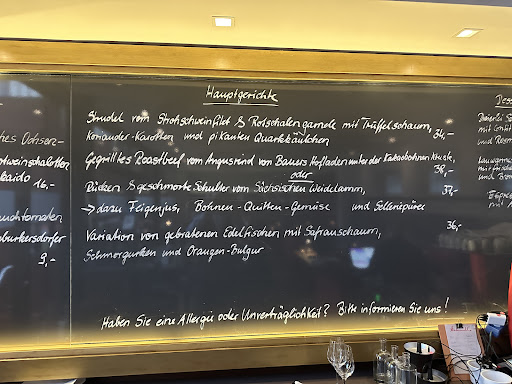 Hauptgerichte
Strudel vom Strohschweinfilet & Rotschalengarnele mit Trüffelschaum,
Koriander-Karotten und pikanten Quarkkäulchen 34,-
Gegrilltes Roastbeef vom Angusrind von Bauers Hofladen unter der Kakaobohnenkruste, 38,-
oder
Rücken & geschmorte Schulter vom Sächsischen Weidelamm, 37,-
→ dazu Feigenjus, Bohnen-Quitten-Gemüse und Selleriepüree
Variation von gebratenen Edelfischen mit Safranschaum, 36,-
Schmorgurken und Orangen-Bulgur
Haben Sie eine Allergie oder Unverträglichkeit? Bitte informieren Sie uns!
hes Ochsen-
otweinschalotten
kaido 16,-
uchtomaten,
burkersdorfer
9,-
Des
Dreierlei
mit
und
mit
und
mit